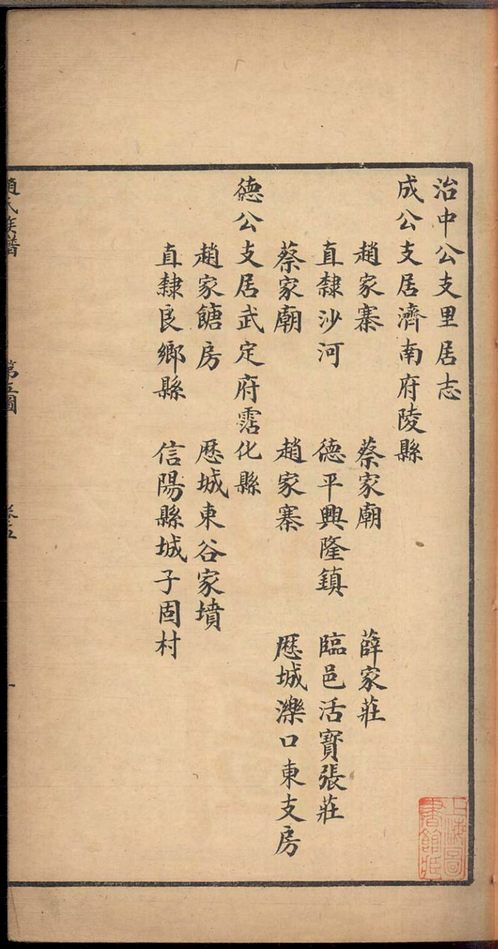 治中公支里居志
成公支居濟南府陵縣
趙家寨 蔡家廟 薛家莊
直隸沙河 德平興隆鎮 臨邑活寶張莊
蔡家廟 趙家寨 歷城濼口東支房
德公支居武定府霑化縣
趙家餹房 歷城東谷家墳
直隸良鄉縣 信陽縣城子固村
趙氏族譜 第五圖
上海圖書館藏